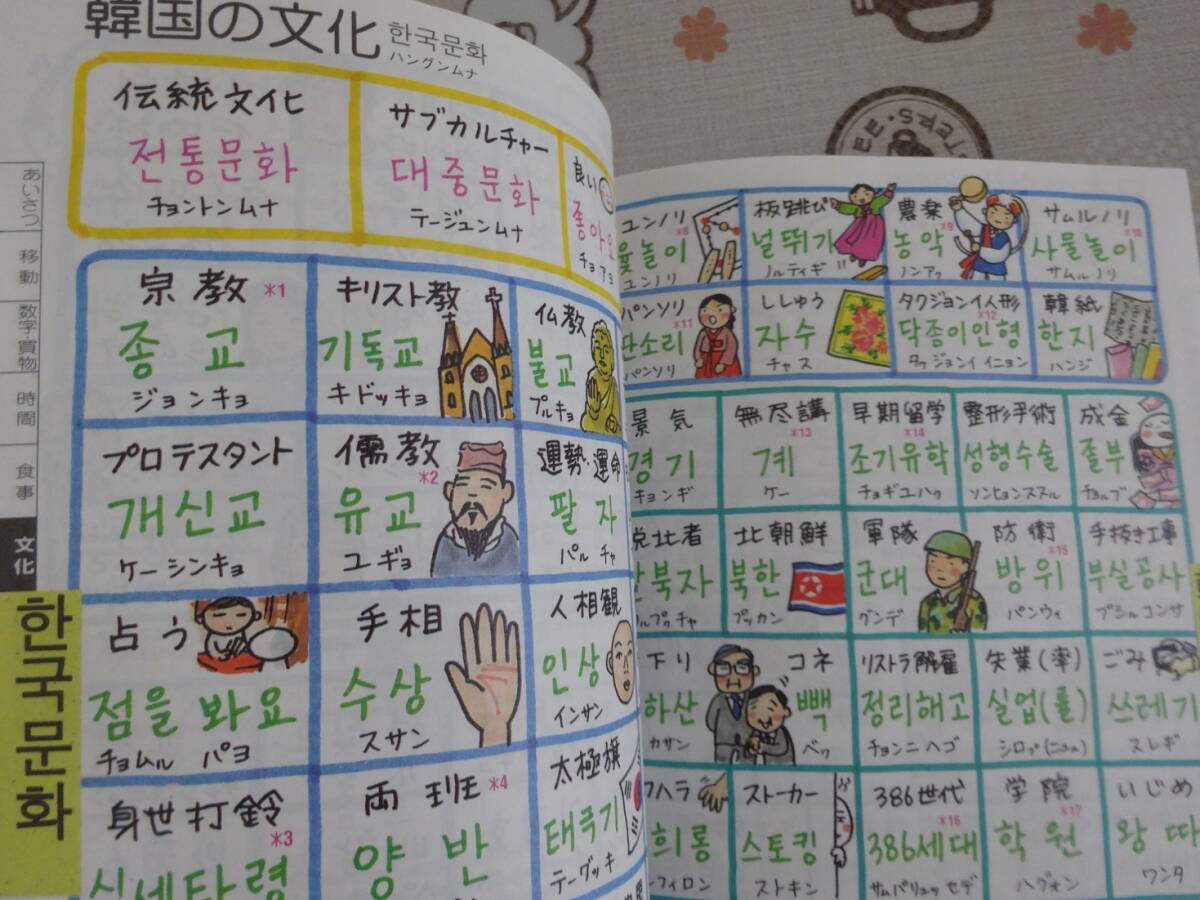 韓国の文化
한국문화
ハングンムナ
伝統文化
전통문화
チョントンムナ
サブカルチャー
대중문화
テージュンムナ
良い
좋아요
チョアヨ
あいさつ
移動
数字買物
時間
食事
文化
한국문화
宗教 *1
종교
ジョンキョ
キリスト教
기독교
キドッキョ
仏教
불교
プルキョ
プロテスタント
개신교
ケーシンキョ
儒教
*2
유교
ユギョ
運勢・運命
팔자
パルチャ
占う
점을 봐요
チョムル パヨ
手相
수상
スサン
人相観
인상
インサン
身世打鈴
*3
신세타령
両班 *4
양반
太極旗
태극기
テーグッキ
ユンノリ
*8
윷놀이
ユンノリ
板跳び
널뛰기
ノルティギ
農楽
*9
농악
ノンアク
サムルノリ
*10
사물놀이
サムルノリ
パンソリ
*11
판소리
パンソリ
ししゅう
자수
チャス
タクジョンイ人形
*12
닥종이인형
タクジョンイ イニョン
韓紙
한지
ハンジ
景気
경기
キョンギ
無尽講
*13
계
ケー
早期留学
*14
조기유학
チョギユハク
整形手術
성형수술
ソンヒョンススル
成金
졸부
チョルブ
脱北者
탈북자
タルプクチャ
北朝鮮
북한
プッカン
軍隊
군대
グンデ
防衛
*15
방위
パンウィ
手抜き工事
부실공사
プシルコンサ
下り
하산
カサン
コネ
빽
ペク
リストラ解雇
정리해고
チョンニヘゴ
失業(率)
실업(률)
シロプ(ニュル)
ごみ
쓰레기
スレギ
クハラ
희롱
フィロン
ストーカー
스토킹
ストキン
386世代
*16
386세대
サムパリュック セデ
学院
*17
학원
ハグォン
いじめ
왕따
ワンタ